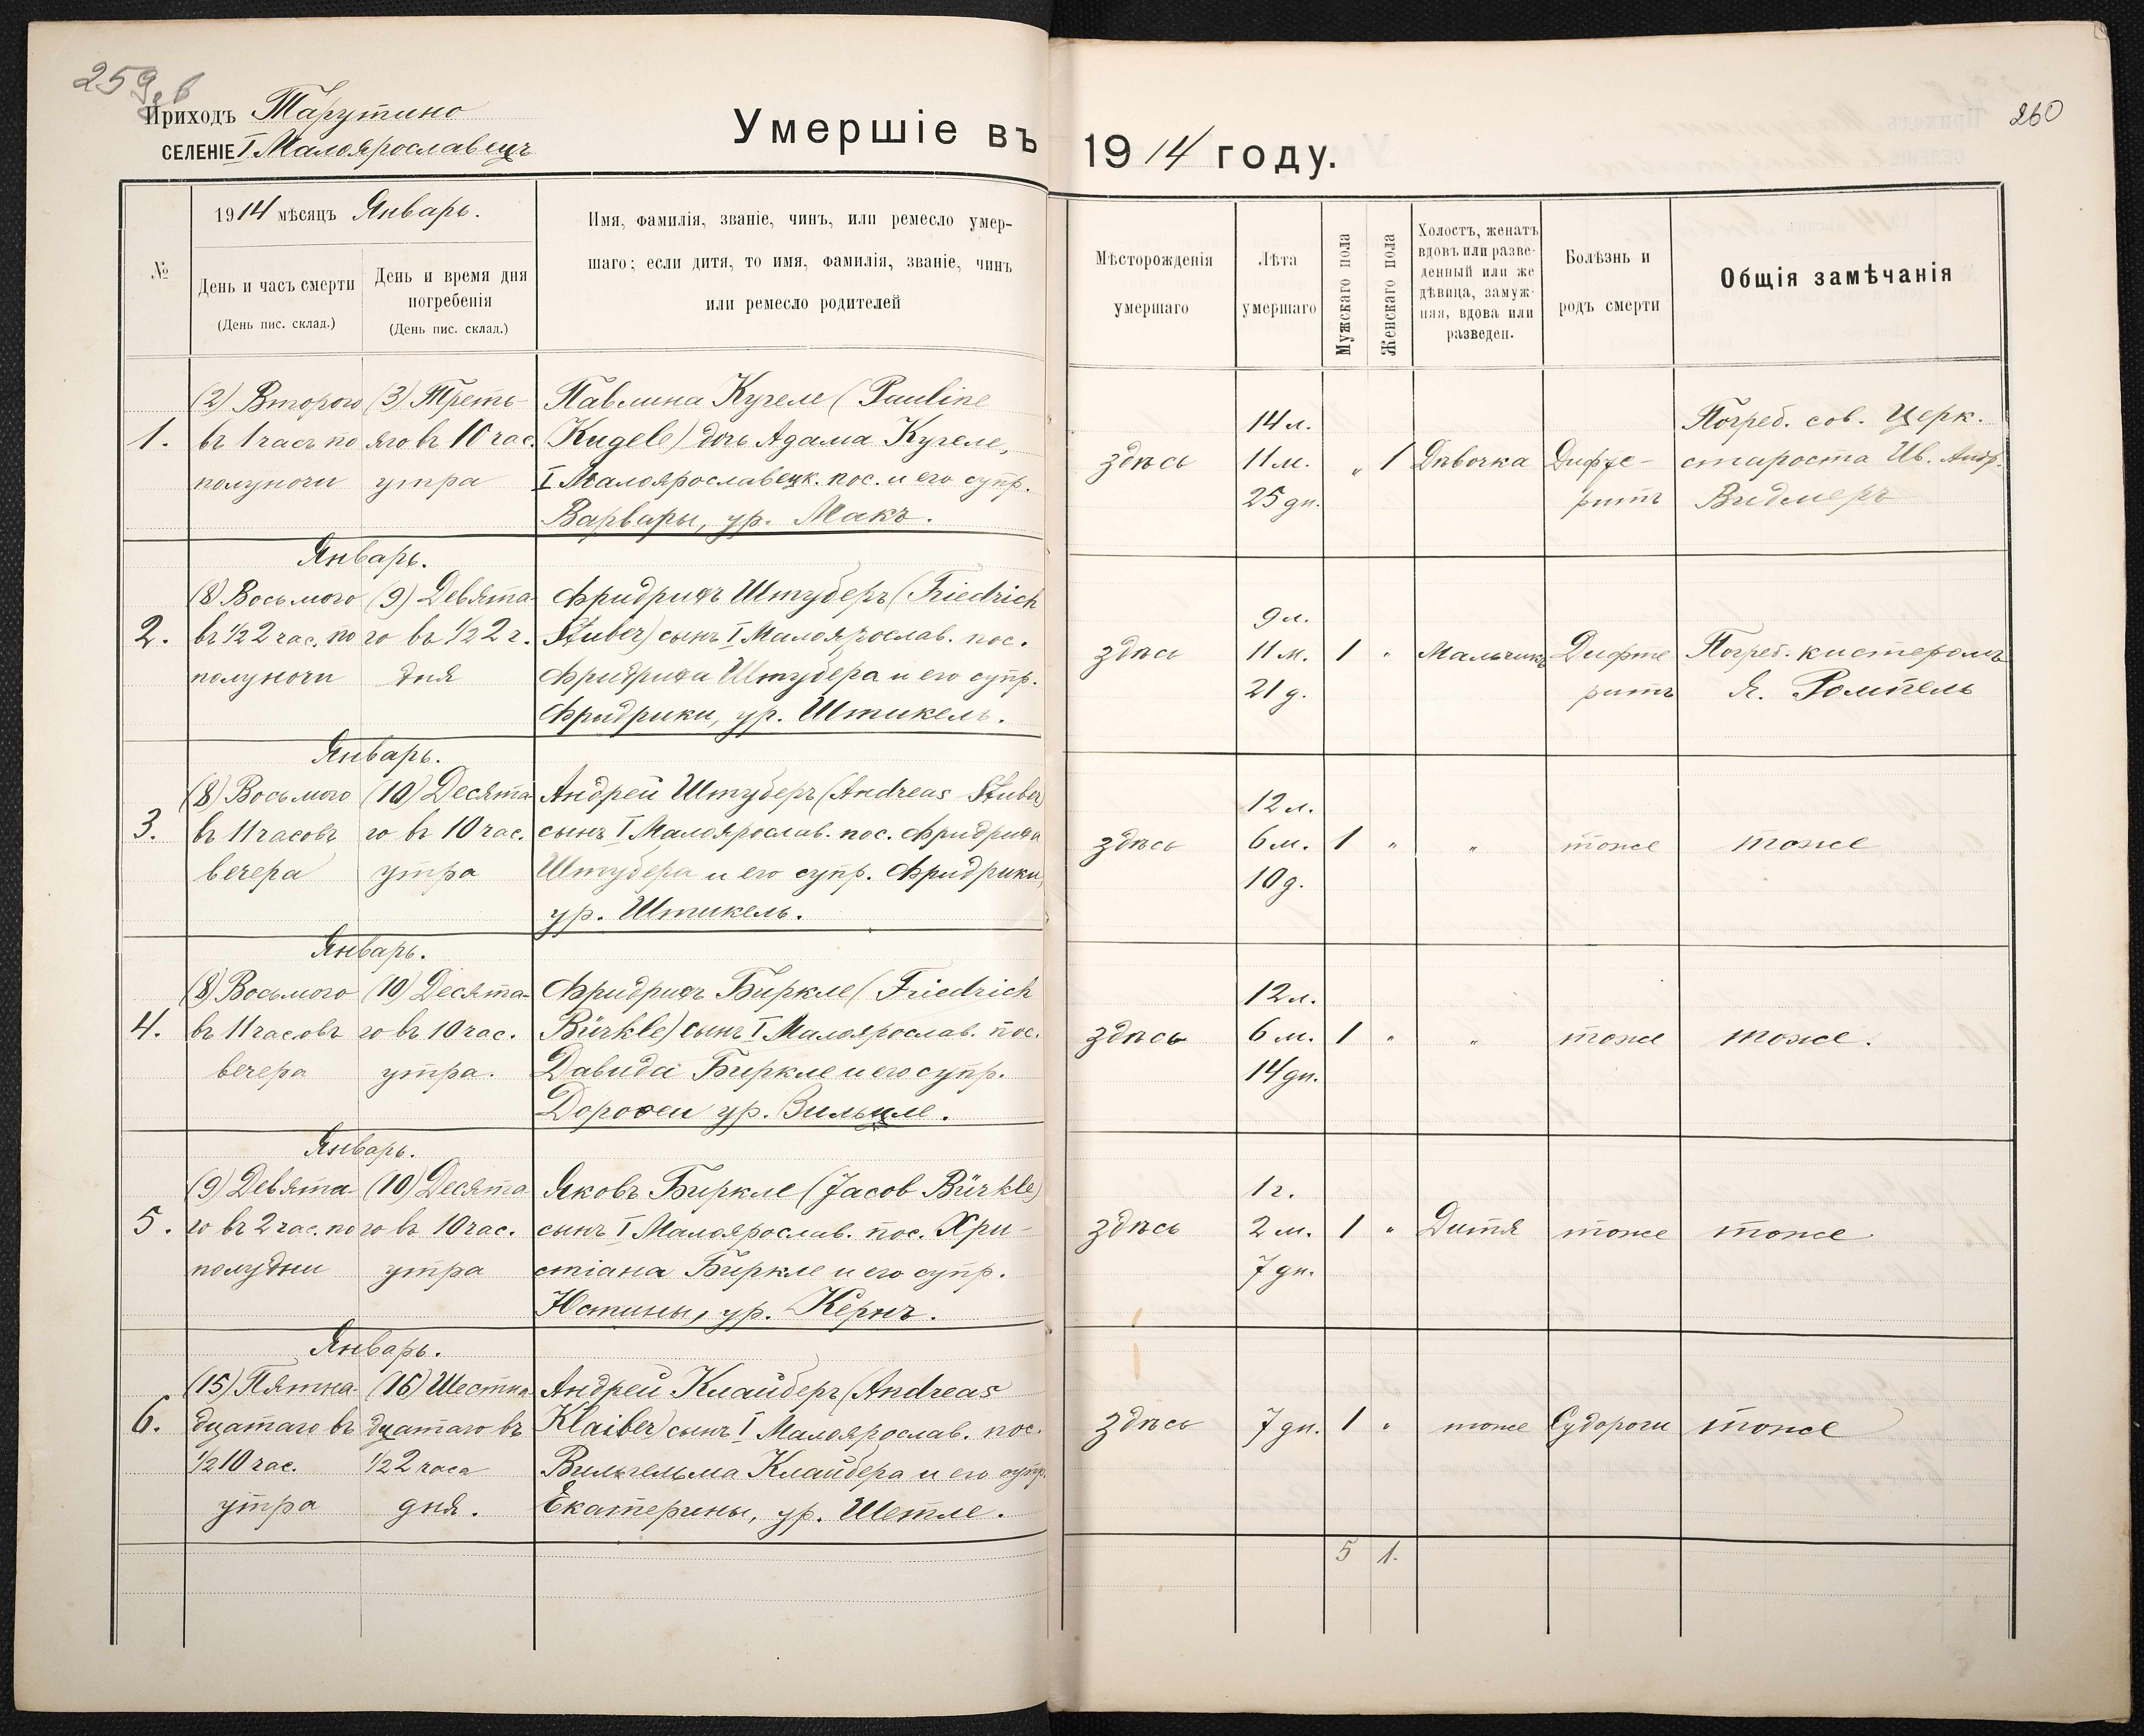 259.в
Приходъ Тарутино
СЕЛЕНІЕ I Малоярославецъ
Умершіе въ 1914 году.
260
№
1914 мѣсяцъ Январь.
День и часъ смерти
(День пис. склад.)
День и время дня
погребенія
(День пис. склад.)
Имя, фамилія, званіе, чинъ, или ремесло умер-
шаго; если дитя, то имя, фамилія, званіе, чинъ
или ремесло родителей
Мѣсторожденія
умершаго
Лѣта
умершаго
Мужскаго пола
Женскаго пола
Холостъ, женатъ
вдовъ или разве-
денный или же
дѣвица, замуж-
няя, вдова или
разведен.
Болѣзнь и
родъ смерти
Общія замѣчанія
1.
(2) Второго
въ 1 часъ по
полуночи
(3) Треть-
яго въ 10 час.
утра
Павлина Кугеле (Pauline
Kugele) дочь Адама Кугеле,
I Малоярославецк. пос. и его супр.
Варвары, ур. Макъ.
здѣсь
14 л.
11 м.
25 дн.
„ 1
Дѣвочка
Дифте-
ритъ
Погреб. сов. церк.
староста Ив. Андр.
Видмеръ
Январь.
2.
(8) Восьмого
въ ½ 2 час. по
полуночи
(9) Девята-
го въ ½ 2 ч.
дня
Фридрихъ Штуберъ (Friedrich
Stuber) сынъ I Малоярослав. пос.
Фридриха Штубера и его супр.
Фридрики, ур. Штикель.
здѣсь
9 л.
11 м.
21 д.
1 „
Мальчикъ
Дифте
ритъ
Погреб. кистеромъ
Я. Ромпель
Январь.
3.
(8) Восьмого
въ 11 часовъ
вечера
(10) Десята-
го въ 10 час.
утра
Андрей Штуберъ (Andreas Stuber)
сынъ I Малоярослав. пос. Фридриха
Штубера и его супр. Фридрики,
ур. Штикель.
здѣсь
12 л.
6 м.
10 д.
1 „
„
тоже
тоже
Январь.
4.
(8) Восьмого
въ 11 часовъ
вечера
(10) Десята-
го въ 10 час.
утра.
Фридрихъ Биркле (Friedrich
Bürkle) сынъ I Малоярослав. пос.
Давида Биркле и его супр.
Доротеи ур. Вильцле.
здѣсь
12 л.
6 м.
14 дн.
1 „
„
тоже
тоже.
Январь.
5.
(9) Девята-
го въ 2 час. по
полудни
(10) Десята
го въ 10 час.
утра
Яковъ Биркле (Jacob Bürkle)
сынъ I Малоярослав. пос. Хри-
стіана Биркле и его супр.
Юстины, ур. Кернъ.
здѣсь
1 г.
2 м.
7 дн.
1 „
Дитя
тоже
тоже
Январь.
6.
(15) Пятна-
дцатаго въ
½ 10 час.
утра
(16) Шестна
дцатаго въ
½ 2 часа
дня.
Андрей Клайберъ (Andreas
Klaiber) сынъ I Малоярослав. пос.
Вильгельма Клайбера и его супр.
Екатерины, ур. Шетле.
здѣсь
7 дн.
1 „
тоже
Судороги
тоже
5 1.